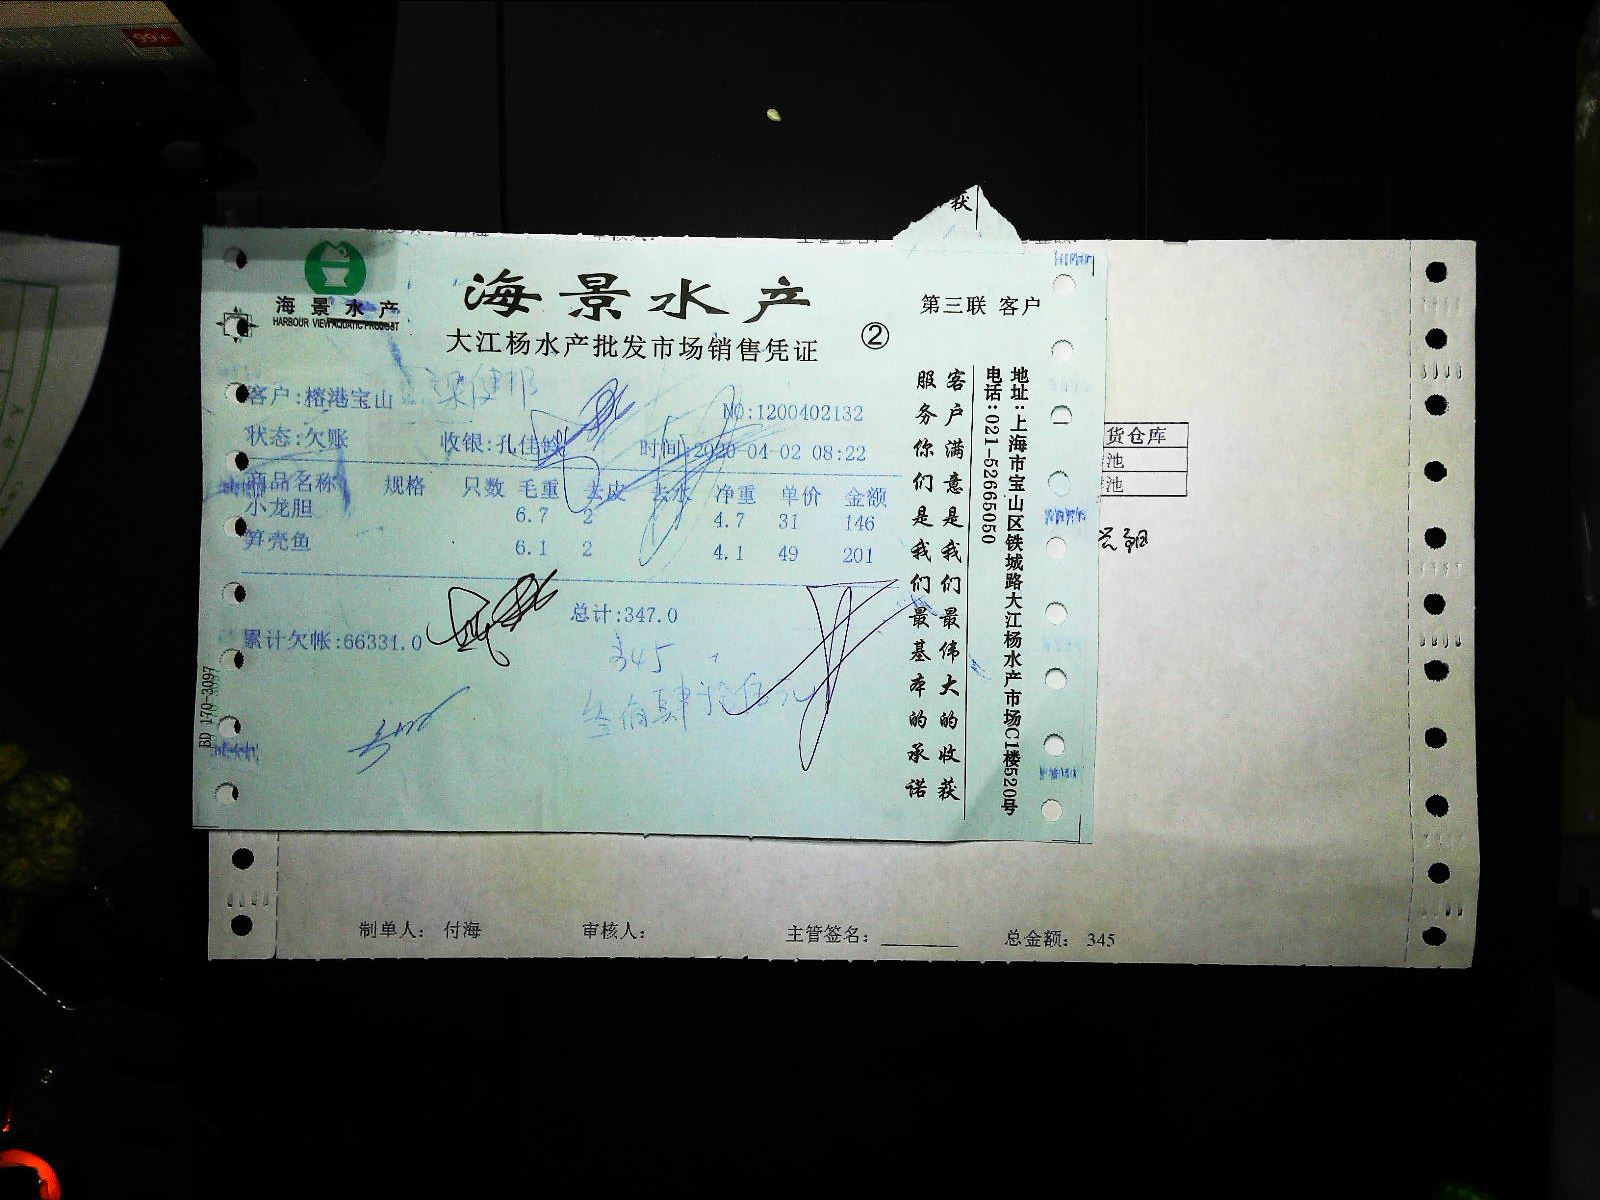 99+
获
海景水产
HARBOUR VIEW AQUATIC PRODUCT
海景水产
第三联 客户
大江杨水产批发市场销售凭证
②
客户:榕港宝山
NO:1200402132
状态:欠账 收银:孔佳龄 时间:2020-04-02 08:22
商品名称 规格 只数 毛重 去皮 去水 净重 单价 金额
小龙胆 6.7 2 4.7 31 146
笋壳鱼 6.1 2 4.1 49 201
总计:347.0
累计欠帐:66331.0
345
叁佰肆拾伍元
BD 170-3097
客户满意是我们最伟大的收获
服务你们是我们最基本的承诺
地址:上海市宝山区铁城路大江杨水产市场C1楼520号
电话:021-52665050
货仓库
池
池
制单人: 付海 审核人: 主管签名: 总金额: 345